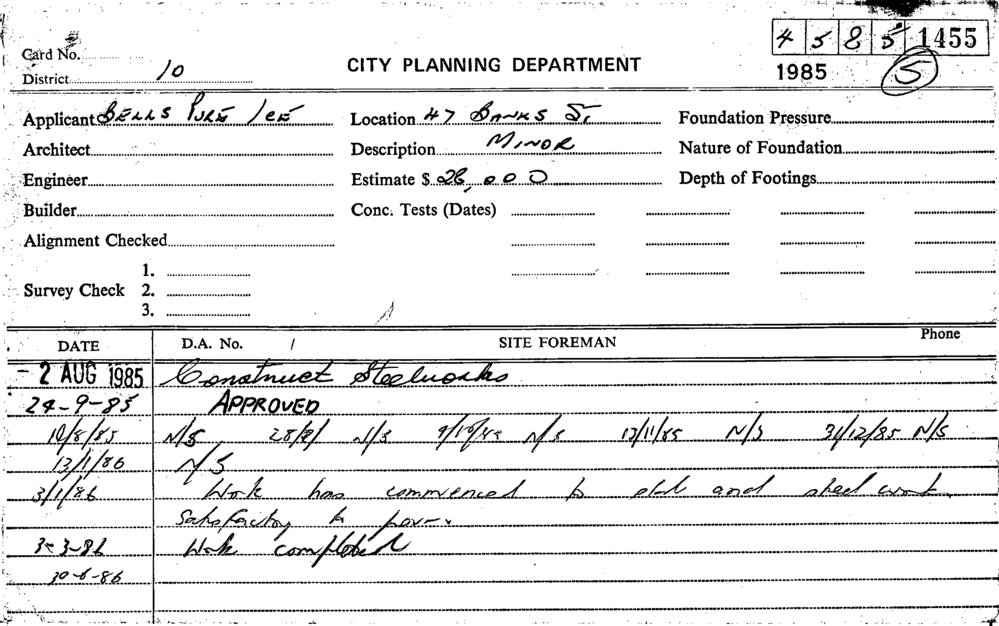 4 5 8 5 1455
Card No.
District 10
CITY PLANNING DEPARTMENT
1985 5
Applicant BELLS PURE ICE
Location 47 BANKS ST
Foundation Pressure
Architect
Description MINOR
Nature of Foundation
Engineer
Estimate $ 26,000
Depth of Footings
Builder
Conc. Tests (Dates)
Alignment Checked
1.
Survey Check 2.
3.
DATE D.A. No. SITE FOREMAN Phone
- 2 AUG 1985 Construct Steelworks
24-9-85 APPROVED
N/S 28/8/ N/S N/S 13/11/85 N/S 31/12/85 N/S
13/1/86 N/S
3/1/86 Work has commenced to slab and steel work
Satisfactory to
3-3-86 Work completed
30-6-86